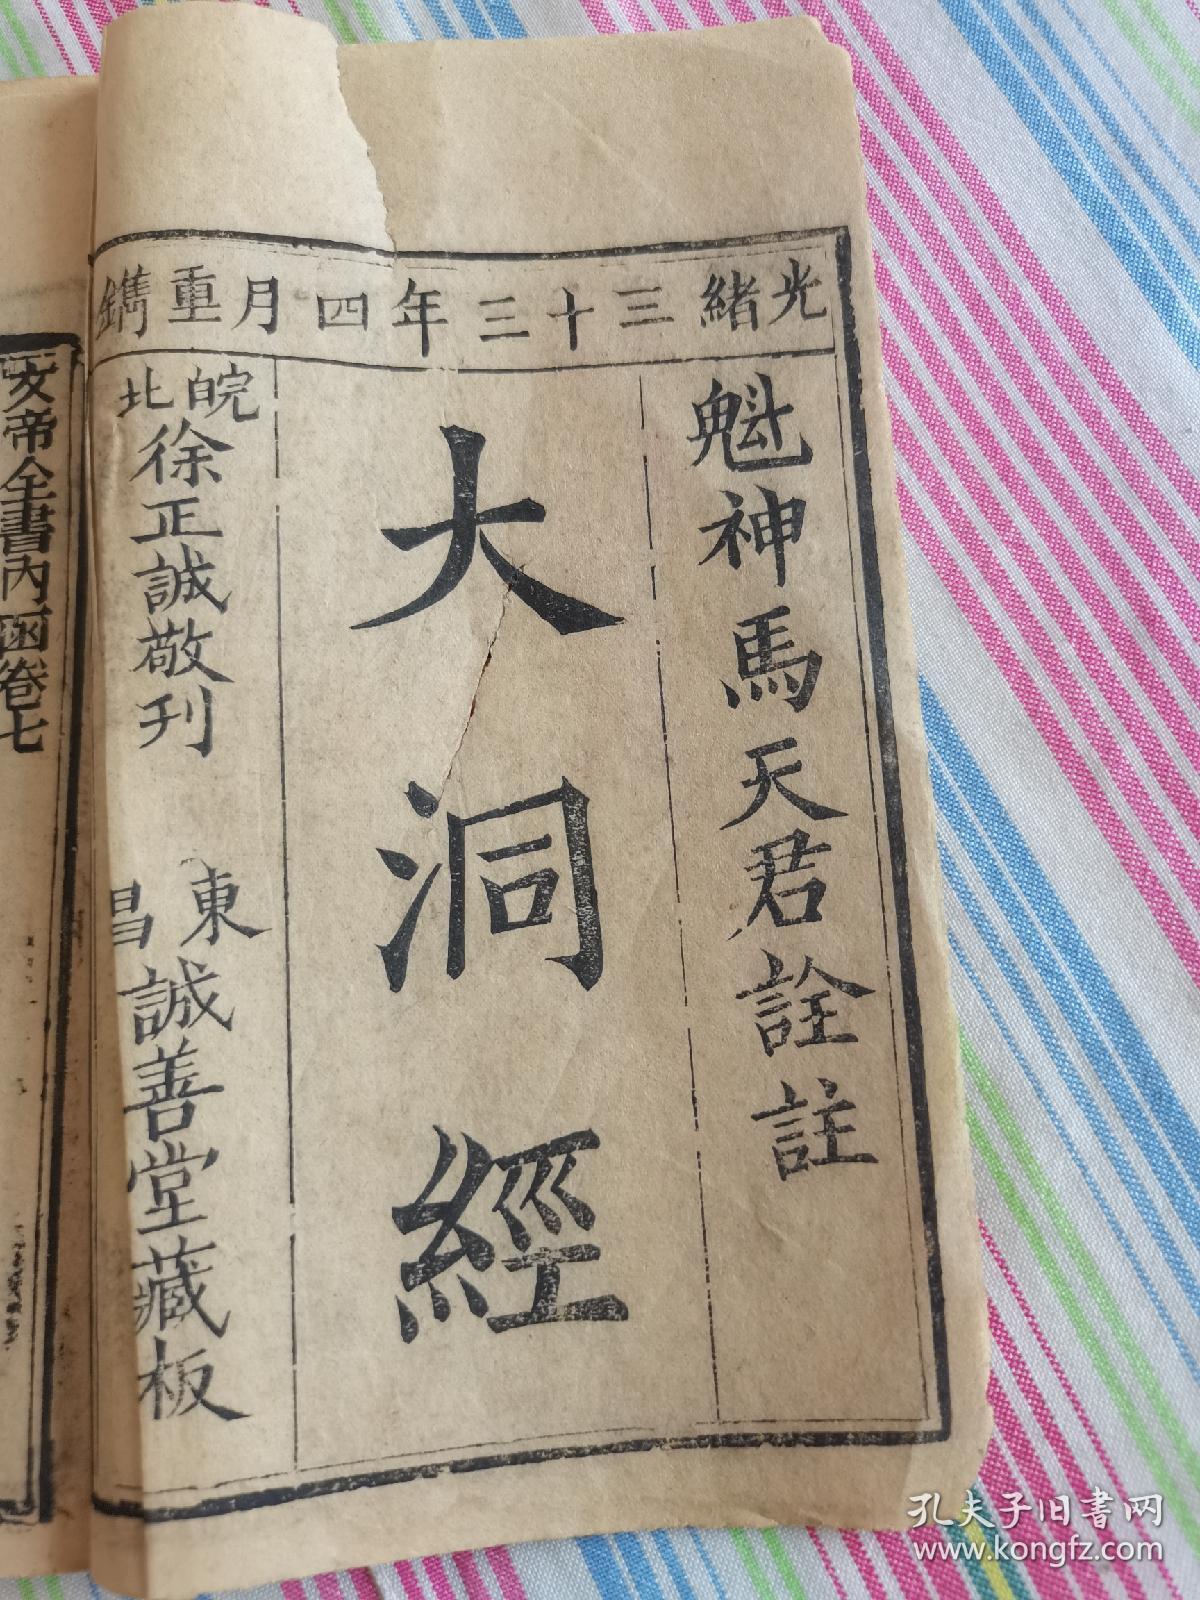 光緒三十三年四月重鐫
魁神馬天君詮註
大洞經
皖北徐正誠敬刊
東昌誠善堂藏板
文帝全書內函卷七
孔夫子旧书网
www.kongfz.com